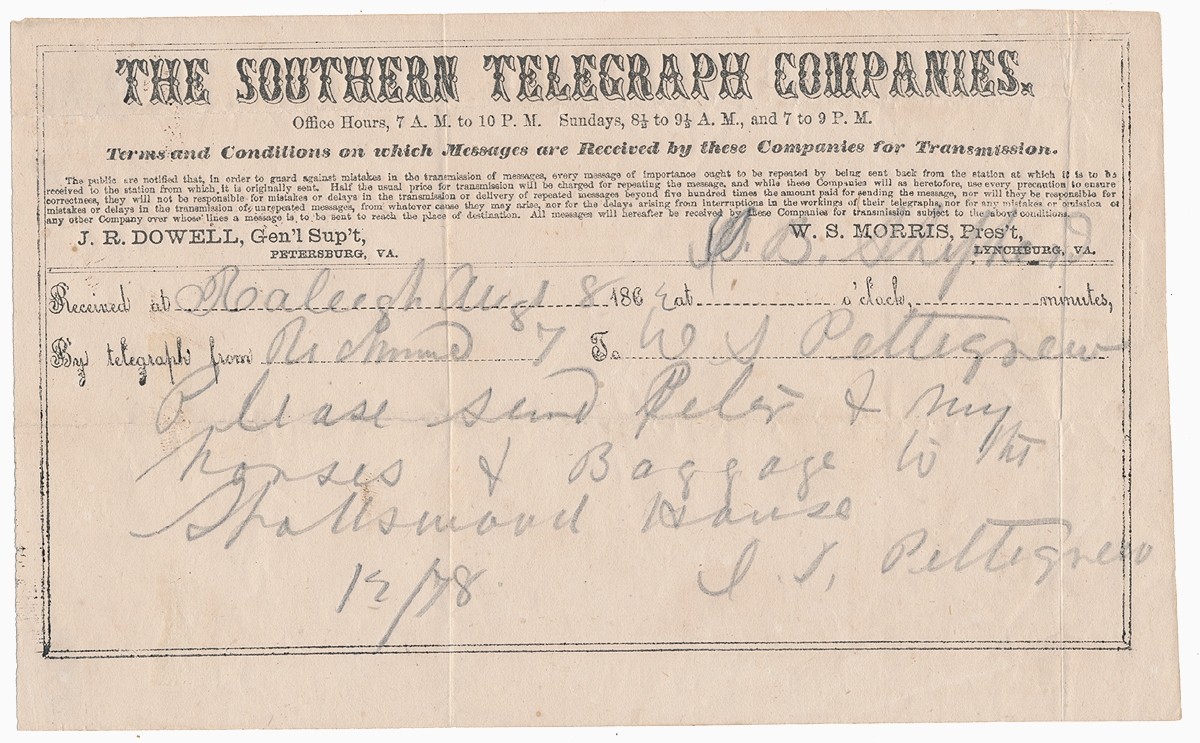 THE SOUTHERN TELEGRAPH COMPANIES.
Office Hours, 7 A. M. to 10 P. M. Sundays, 8½ to 9½ A. M., and 7 to 9 P. M.
Terms and Conditions on which Messages are Received by these Companies for Transmission.
The public are notified that, in order to guard against mistakes in the transmission of messages, every message of importance ought to be repeated by being sent back from the station at which it is to be
received to the station from which it is originally sent. Half the usual price for transmission will be charged for repeating the message, and while these Companies will as heretofore, use every precaution to ensure
correctness, they will not be responsible for mistakes or delays in the transmission or delivery of repeated messages beyond five hundred times the amount paid for sending the message, nor will they be responsible for
mistakes or delays in the transmission of unrepeated messages, from whatever cause they may arise, nor for the delays arising from interruptions in the workings of their telegraphs, nor for any mistakes or omission of
any other Company over whose lines a message is to be sent to reach the place of destination. All messages will hereafter be received by these Companies for transmission subject to the above conditions.
J. R. DOWELL, Gen'l Sup't,
PETERSBURG, VA.
W. S. MORRIS, Pres't,
LYNCHBURG, VA.
Received at Raleigh Aug 8 186 at o'clock, minutes,
By telegraph from Richmond 87 To W S Pettigrew
Please send Peter & my
horses & Baggage to the
Spottswood House
12/78
J. J. Pettigrew